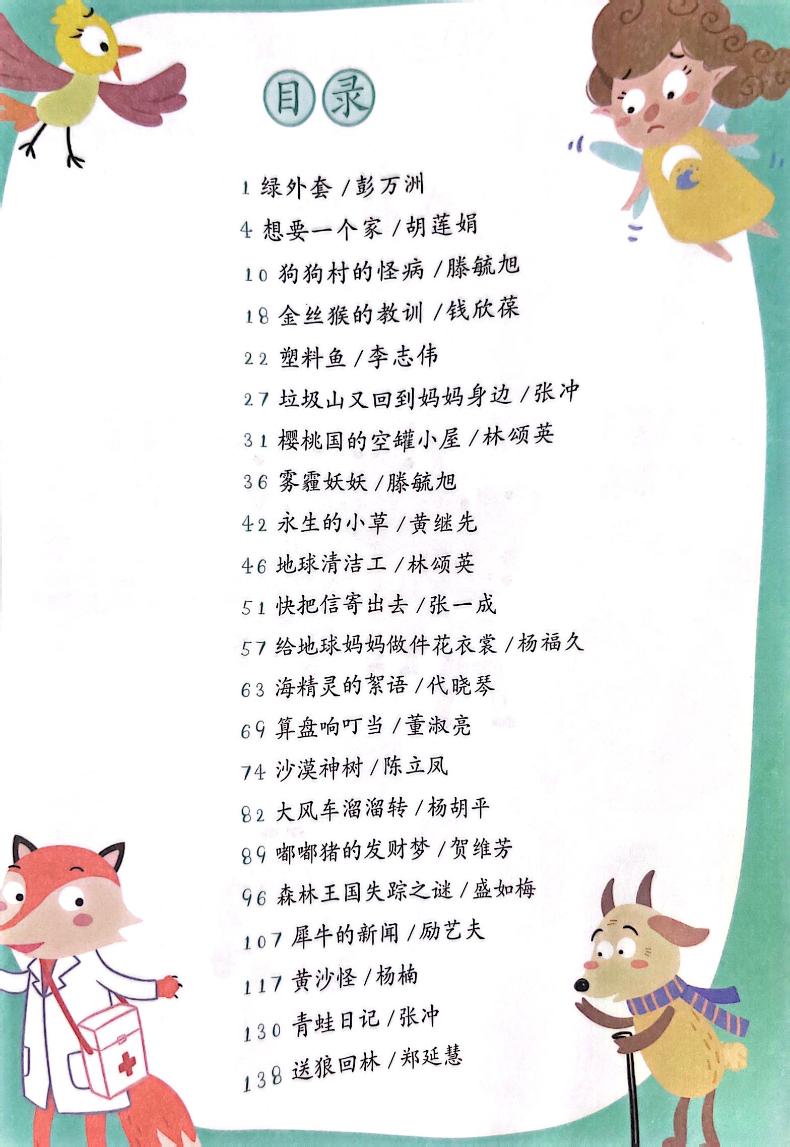 目录
1 绿外套/彭万洲
4 想要一个家/胡莲娟
10 狗狗村的怪病/滕毓旭
18 金丝猴的教训/钱欣葆
22 塑料鱼/李志伟
27 垃圾山又回到妈妈身边/张冲
31 樱桃国的空罐小屋/林颂英
36 雾霾妖妖/滕毓旭
42 永生的小草/黄继先
46 地球清洁工/林颂英
51 快把信寄出去/张一成
57 给地球妈妈做件花衣裳/杨福久
63 海精灵的絮语/代晓琴
69 算盘响叮当/董淑亮
74 沙漠神树/陈立凤
82 大风车溜溜转/杨胡平
89 嘟嘟猪的发财梦/贺维芳
96 森林王国失踪之谜/盛如梅
107 犀牛的新闻/励艺夫
117 黄沙怪/杨楠
130 青蛙日记/张冲
138 送狼回林/郑延慧